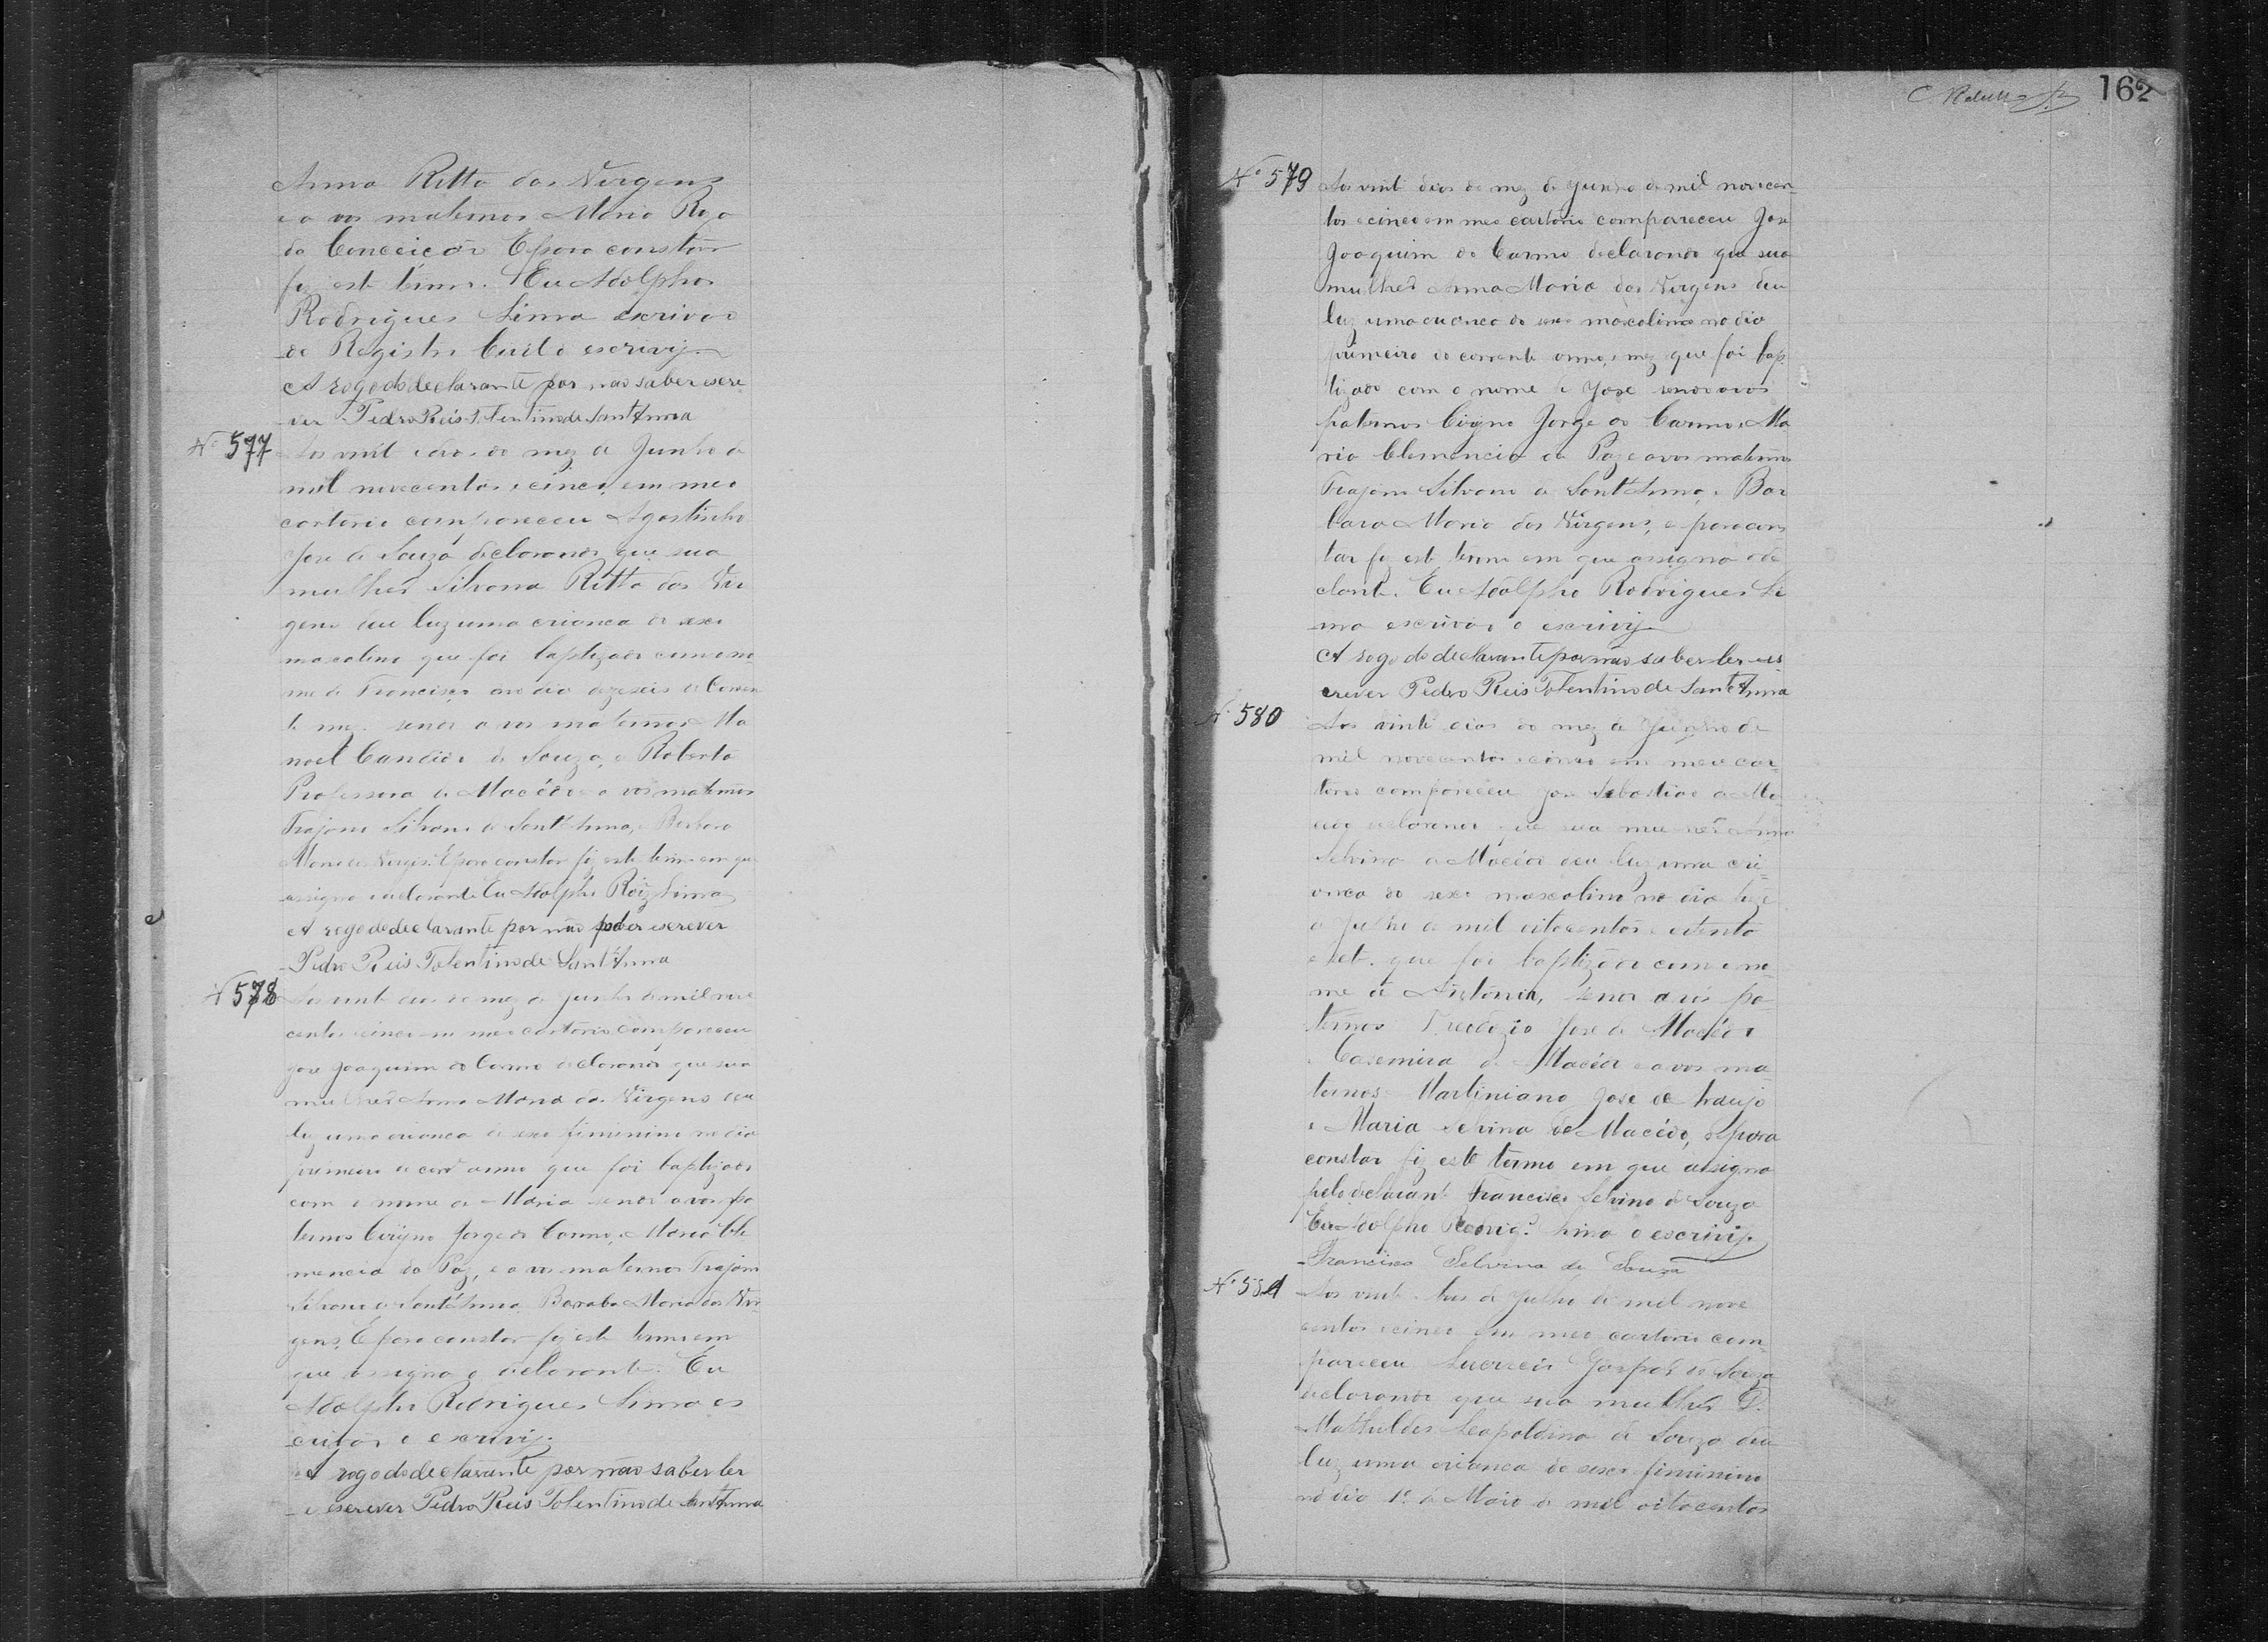 Anna Ritta das Virgens
e a vos maternos Maria Roza
da Conceição E para constar
fiz este termo. Eu Adolpho
Rodrigues Lima escrivão
do Registro Civil o escrivij.
A rogo do declarante por não saber escre
ver Pedro Reis Tolentino de Sant'Anna
Nº 577
Aos vinte dias do mez de Junho de
mil novecentos e cinco, em meo
cartorio compareceu Agostinho
Jose de Souza declarando que sua
mulher Silvana Ritta das Vir
gens deu luz uma criança do sexo
masculino que foi baptizado com o no
me de Francisco, no dia dezeseis do Corren
te mez. sendo a vos maternos Ma
noel Candido de Souza, e Roberta
Professora de Macêdo e a vos maternos
Trajano Silvano de Sant'Anna, e Barbara
Maria das Virgens. E para constar fiz este termo em que
assigna o declarante Eu Adolpho Roiz Lima
A rogo do declarante por não poder escrever
Pedro Reis Tolentino de Sant'Anna
Nº 578
Aos vinte dias do mez de Junho de mil nove
centos e cinco em meo cartorio compareceu
Jose Joaquim do Carmo declarando que sua
mulher Anna Maria das Virgens deu
luz uma criança do sexo feminino no dia
primeiro do corre anno que foi baptizado
com o nome de Maria sendo avos pa
ternos Cirijno Jorge do Carmo, e Maria Cle
mencia da Paz, e a vos maternos Trajano
Silvano de Sant'Anna Barraba Maria das Vir
gens, E para constar fiz este termo em
que assigna o declarante. Eu
Adolpho Rodrigues Lima es
crivão o escrivij.
A rogo do declarante por não saber ler
e escrever Pedro Reis Tolentino de Sant'Anna
162
Nº 579
Aos vinte dias do mez de Junho de mil novecen
tos e cinco em meo cartorio compareceu Jose
Joaquim do Carmo declarando que sua
mulher Anna Maria das Virgens deu
luz uma criança do sexo masculino no dia
primeiro do corrente anno e mez que foi bap
tizado com o nome de Jose sendo avos
paternos Cirijno Jorge do Carmo, e Ma
ria Clemencia da Paz e avos maternos
Trajano Silvano de Sant'Anna, e Bar
bara Maria das Virgens, e para cons
tar fiz este termo em que assigna o de
clante. Eu Adolpho Rodrigues Li
ma escrivão o escrivij
A rogo do declarante por não saber ler e es
crever Pedro Reis Tolentino de Sant'Anna
Nº 580
Aos vinte dias do mez de Junho de
mil novecentos e cinco em meo car
torio compareceu Jose Sebastião de Ma
cedo declarando que sua mulher Anna
Selvina de Macêdo deu luz uma cri
ança do sexo masculino no dia treze
de Julho de mil oitocentos e oitenta
e sete que foi baptizado com o no
me de Antonia, sendo avós pa
ternos Jose de Macêdo
e Casemira de Macêdo e avos ma
ternos Martiniano Jose de Araujo
e Maria Selvina de Macêdo, e para
constar fiz este termo em que assigna
pelo declarante Francisco Selvino de Souza
Eu Adolpho Rodrigs Lima o escrivij.
Francisco Selvino de Souza
Nº 581
Aos vinte e tres de Julho de mil nove
centos e cinco em meo cartorio com
pareceu Gaspar de Souza
declarando que sua mulher D.
Mathildes Leopoldina de Souza deu
luz uma criança do sexo feminino
no dia 1º de Maio de mil oitocentos